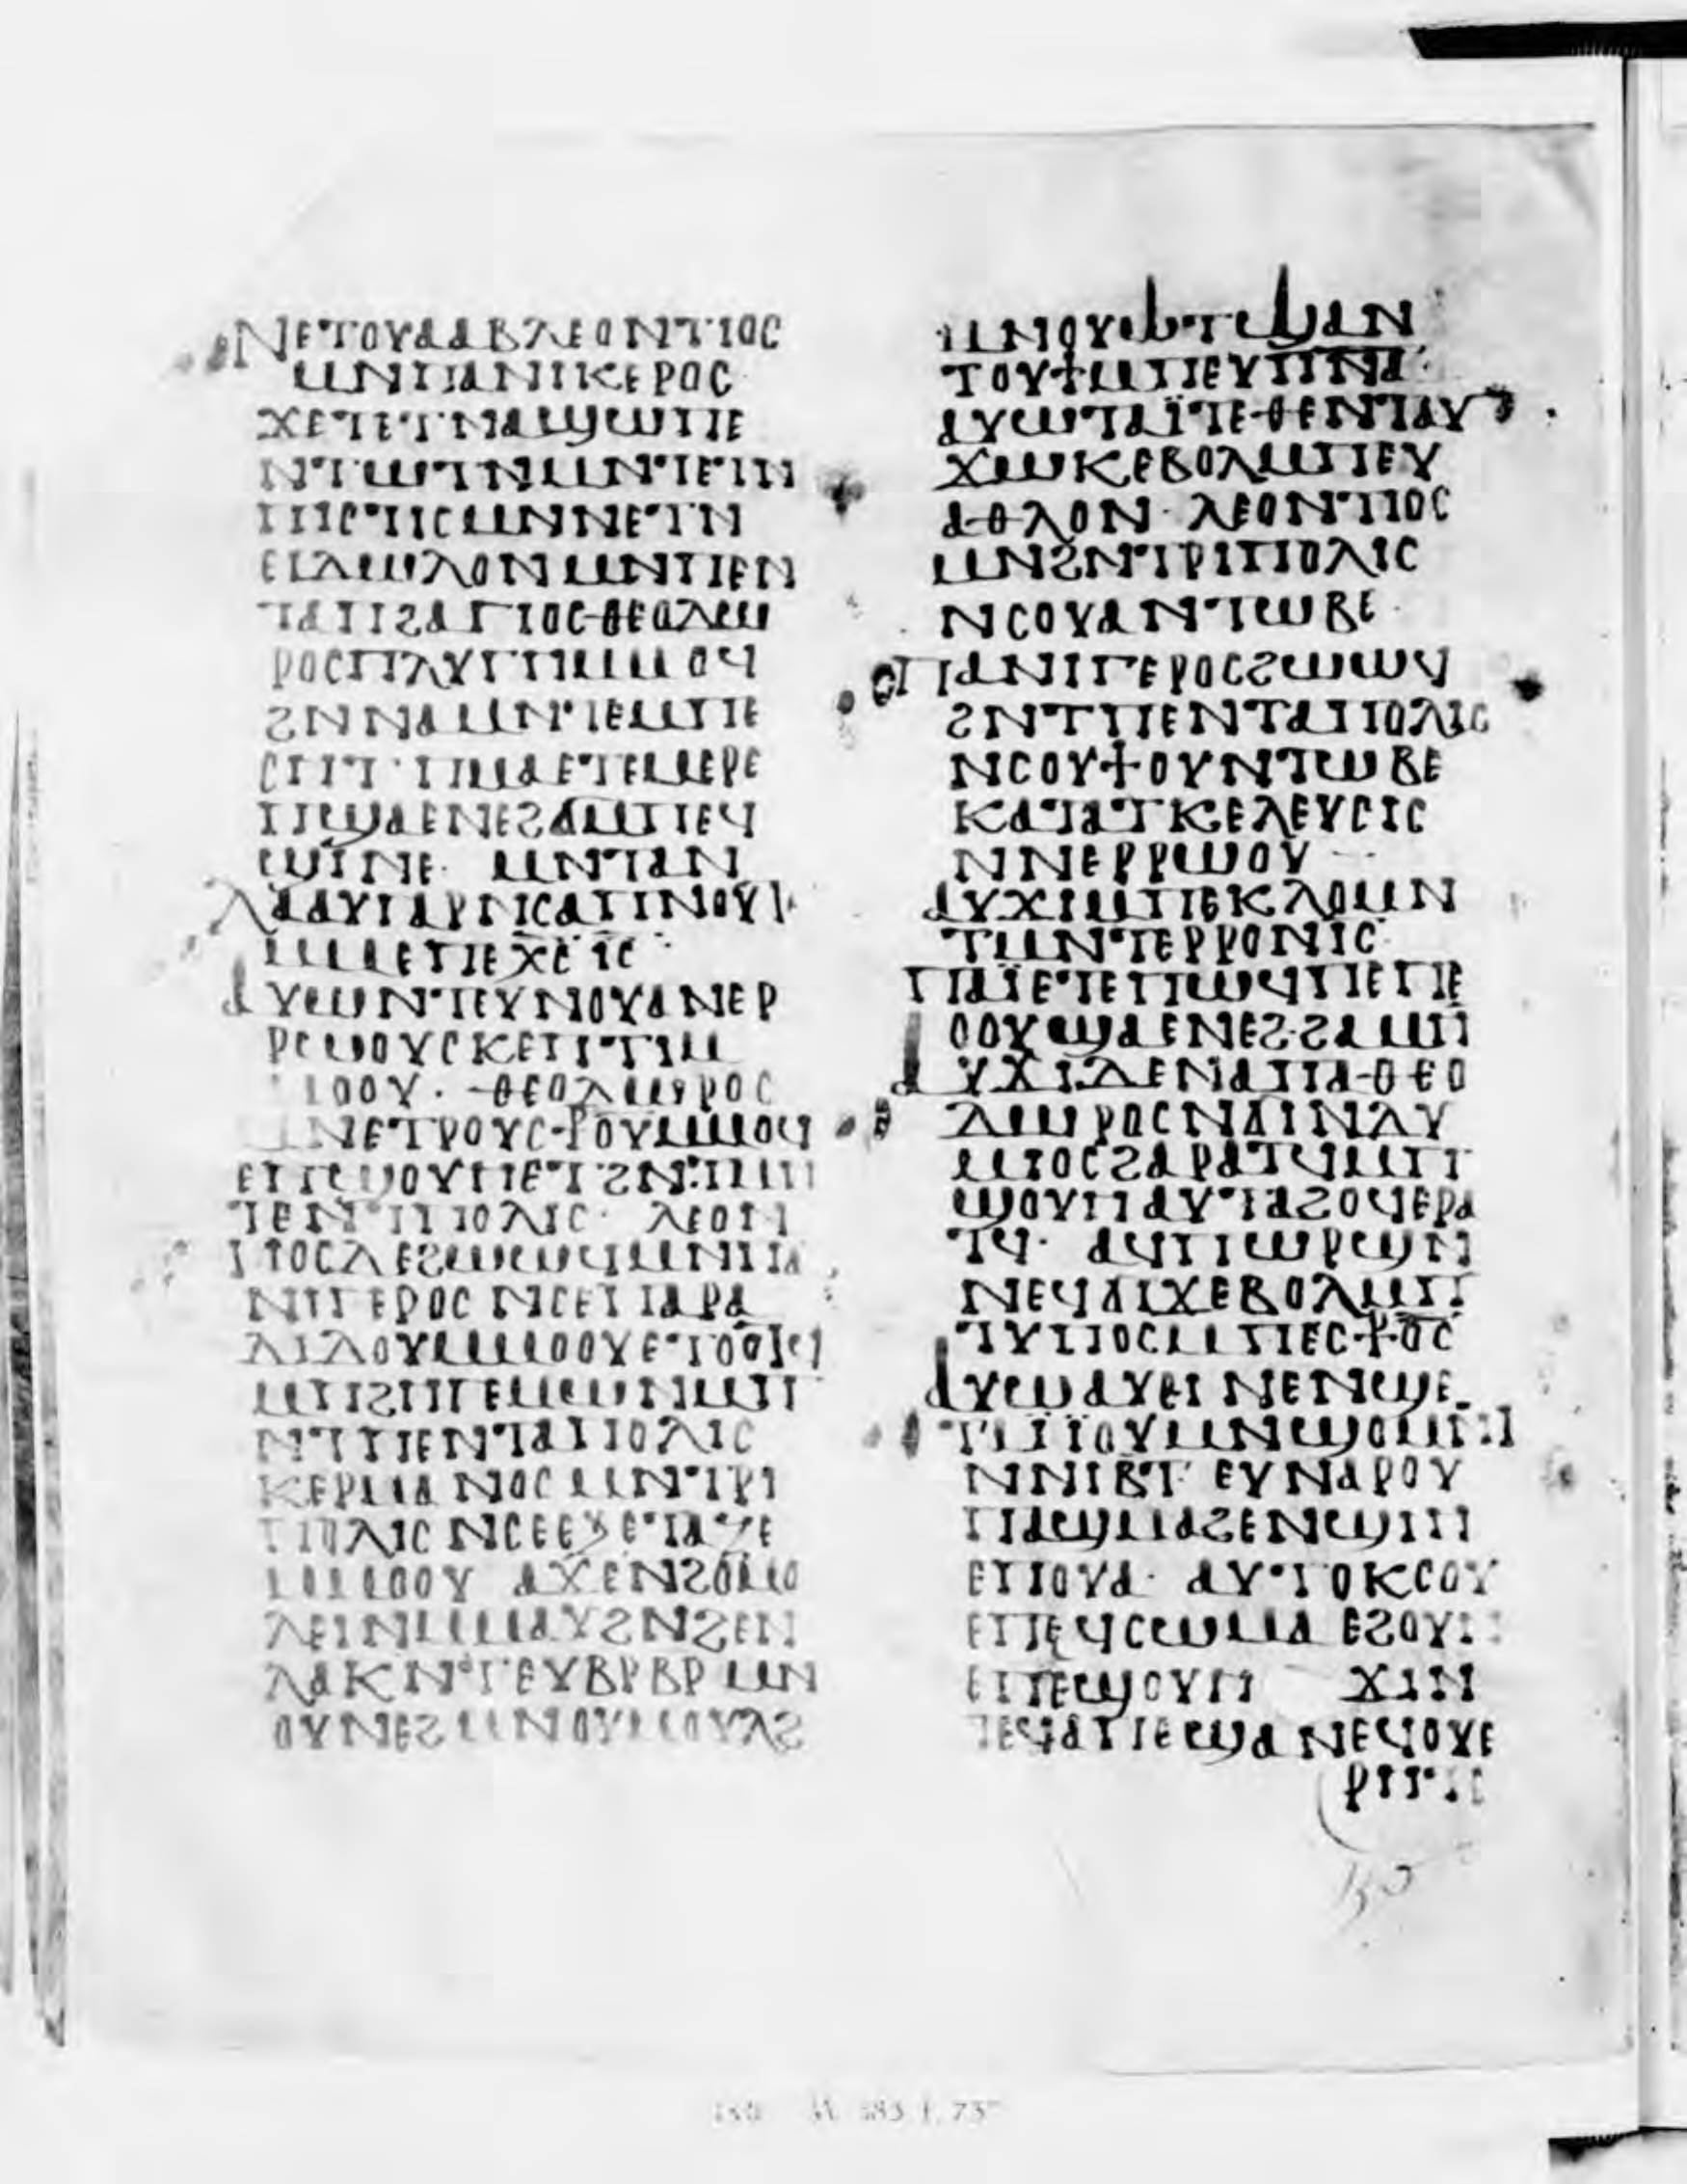 ⲚⲈⲦⲞⲨⲀⲀⲂⲖⲈⲞⲚⲦⲒⲞⲤ
ⲘⲚⲠⲀⲚⲒⲔⲈⲢⲞⲤ
ϪⲈⲦⲈⲦⲚⲀϢⲰⲠⲈ
ⲚⲦⲰⲦⲚⲘⲚⲦⲈⲦⲚ
ⲠⲒⲤⲦⲒⲤⲘⲚⲚⲈⲦⲚ
ⲈⲒⲆⲰⲖⲟⲚⲘⲚⲠⲈⲚ
ⲦⲀⲠϨⲀⲄⲒⲞⲤⲐⲈⲞⲆⲰ
ⲢⲞⲤⲠⲖⲨⲄⲎⲘⲘⲞϤ
ϨⲚⲚⲀⲘⲚⲦⲈⲘⲠⲈ
ⲤⲎⲦ· ⲠⲘⲀⲈⲦⲈⲘⲈⲢⲈ
ⲠϢⲀⲈⲚⲈϨⲘⲠⲈϤ
ϢⲒⲚⲈ· ⲘⲚⲦⲀⲚ
ⲖⲀⲀⲨⲀⲢⲚⲒⲤⲀⲠⲚⲞⲨ
ⲘⲘⲈⲠⲈⲬⲤ ⲒⲤ
ⲀⲨⲰⲚⲦⲈⲨⲚⲞⲨⲀⲚⲈⲢ
ⲢⲰⲞⲨⲤⲔⲈⲠⲦⲒⲘ
ⲘⲞⲞⲨ· ⲐⲈⲞⲆⲰⲢⲞⲤ
ⲚⲈⲦⲢⲞⲨⲤϮⲞⲨⲘⲘⲞϤ
ⲈⲠⲈϢⲞⲨⲠⲈⲦϨⲚ
ⲦⲈⲚⲦⲎⲠⲞⲖⲒⲤ· ⲖⲈⲞⲚ
ⲦⲒⲞⲤⲆⲈϨⲰⲰϤⲘⲚⲠⲀ
ⲚⲒⲄⲈⲢⲞⲤ ⲚⲤⲈⲠⲀⲢⲀ
ⲆⲒⲆⲞⲨⲘⲘⲞⲞⲨⲈⲦⲞⲞⲦϤ
ⲘⲠϨⲎⲄⲈⲘⲰⲚⲘⲠ
ⲚⲦⲠⲈⲚⲦⲀⲠⲞⲖⲒⲤ
ⲔⲈⲢⲘⲀⲚⲞⲤ ⲘⲚⲦⲢⲒ
ⲠⲞⲖⲒⲤ ⲚⲤⲈⲈϪⲈⲦⲀⲌⲈ
ⲘⲘⲞⲞⲨ ⲀϪⲈⲚϨⲞⲘⲞ
ⲖⲈⲒⲚⲘⲘⲀⲨϨⲚϨⲈⲚ
ⲖⲀⲔⲚⲦ ⲈⲨⲂⲢⲂⲢ ⲘⲚ
ⲞⲨⲚⲈϨ ⲘⲚⲞⲨⲘⲞⲨⲖϨ
ⲘⲚⲞⲨⲰⲦϢⲀⲚ
ⲦⲞⲨϮⲘⲠⲈⲨⲠⲚⲀ·
ⲀⲨⲰⲦⲀⲒⲦⲈⲐⲈⲚⲦⲀⲨ
ϪⲰⲔⲈⲂⲞⲖⲘⲠⲈⲨ
ⲀⲐⲖⲞⲚ· ⲖⲈⲞⲚⲦⲒⲞⲤ
ⲘⲚϨⲚⲦⲢⲒⲠⲞⲖⲒⲤ
ⲚⲤⲞⲨⲀⲚⲦⲰⲂⲈ·
ⲠⲀⲚⲒⲄⲈⲢⲞⲤϨⲰⲰϤ
ϨⲚⲦⲠⲈⲚⲦⲀⲠⲞⲖⲒⲤ
ⲚⲤⲞⲨϮⲞⲨⲚⲦⲰⲂⲈ
ⲔⲀⲦⲀⲦⲔⲈⲖⲈⲨⲤⲒⲤ
ⲚⲚⲈⲢⲢⲰⲞⲨ
ⲀⲨϪⲒⲘⲠⲈⲔⲖⲞⲘⲚ
ⲦⲘⲚⲦⲈⲢⲢⲞⲚⲒⲤ·
ⲠⲀⲒⲈⲦⲈⲠⲰϤⲠⲈⲠⲈ
ⲞⲞⲨϢⲀⲈⲚⲈϨ·ϨⲀⲘⲎⲚ
ⲀⲨϪⲒⲆⲈⲚⲀⲠⲀⲐⲈⲞ
ⲆⲰⲢⲞⲤⲚⲀⲒⲚⲆⲨ
ⲘⲒⲞⲤϨⲀⲢⲀⲦϤⲘⲠ
ϢⲞⲨⲚⲦⲀⲨⲦⲀϨⲞϤⲈⲢⲀ
ⲦϤ· ⲀϤⲠⲰⲢϢⲚ
ⲚⲈϤϬⲒϪⲈⲂⲞⲖⲘⲠ
ⲦⲨⲠⲞⲤⲘⲠⲈⲤ⳨ⲞⲤ
ⲀⲨⲰⲀⲨⲈⲒ ⲚⲈⲚϢⲈ
ⲦⲠⲒⲞⲨⲘⲚϢⲞⲘⲦ
ⲚⲚⲒⲂⲦ ⲈⲨⲚⲀⲢⲞⲨ
ⲠⲀϢⲘⲀϨⲈⲚϢⲒⲎ
ⲈⲠⲞⲨⲀ· ⲀⲨⲦⲞⲔⲤⲞⲨ
ⲈⲠⲈϤⲤⲰⲘⲀ ⲈϨⲞⲨⲚ
ⲈⲠⲈϢⲞⲨⲚ ϪⲒⲚ
ⲦⲈϤⲀⲠⲈϢⲀⲚⲈϤⲞⲨⲈ
ⲢⲎⲦⲈ